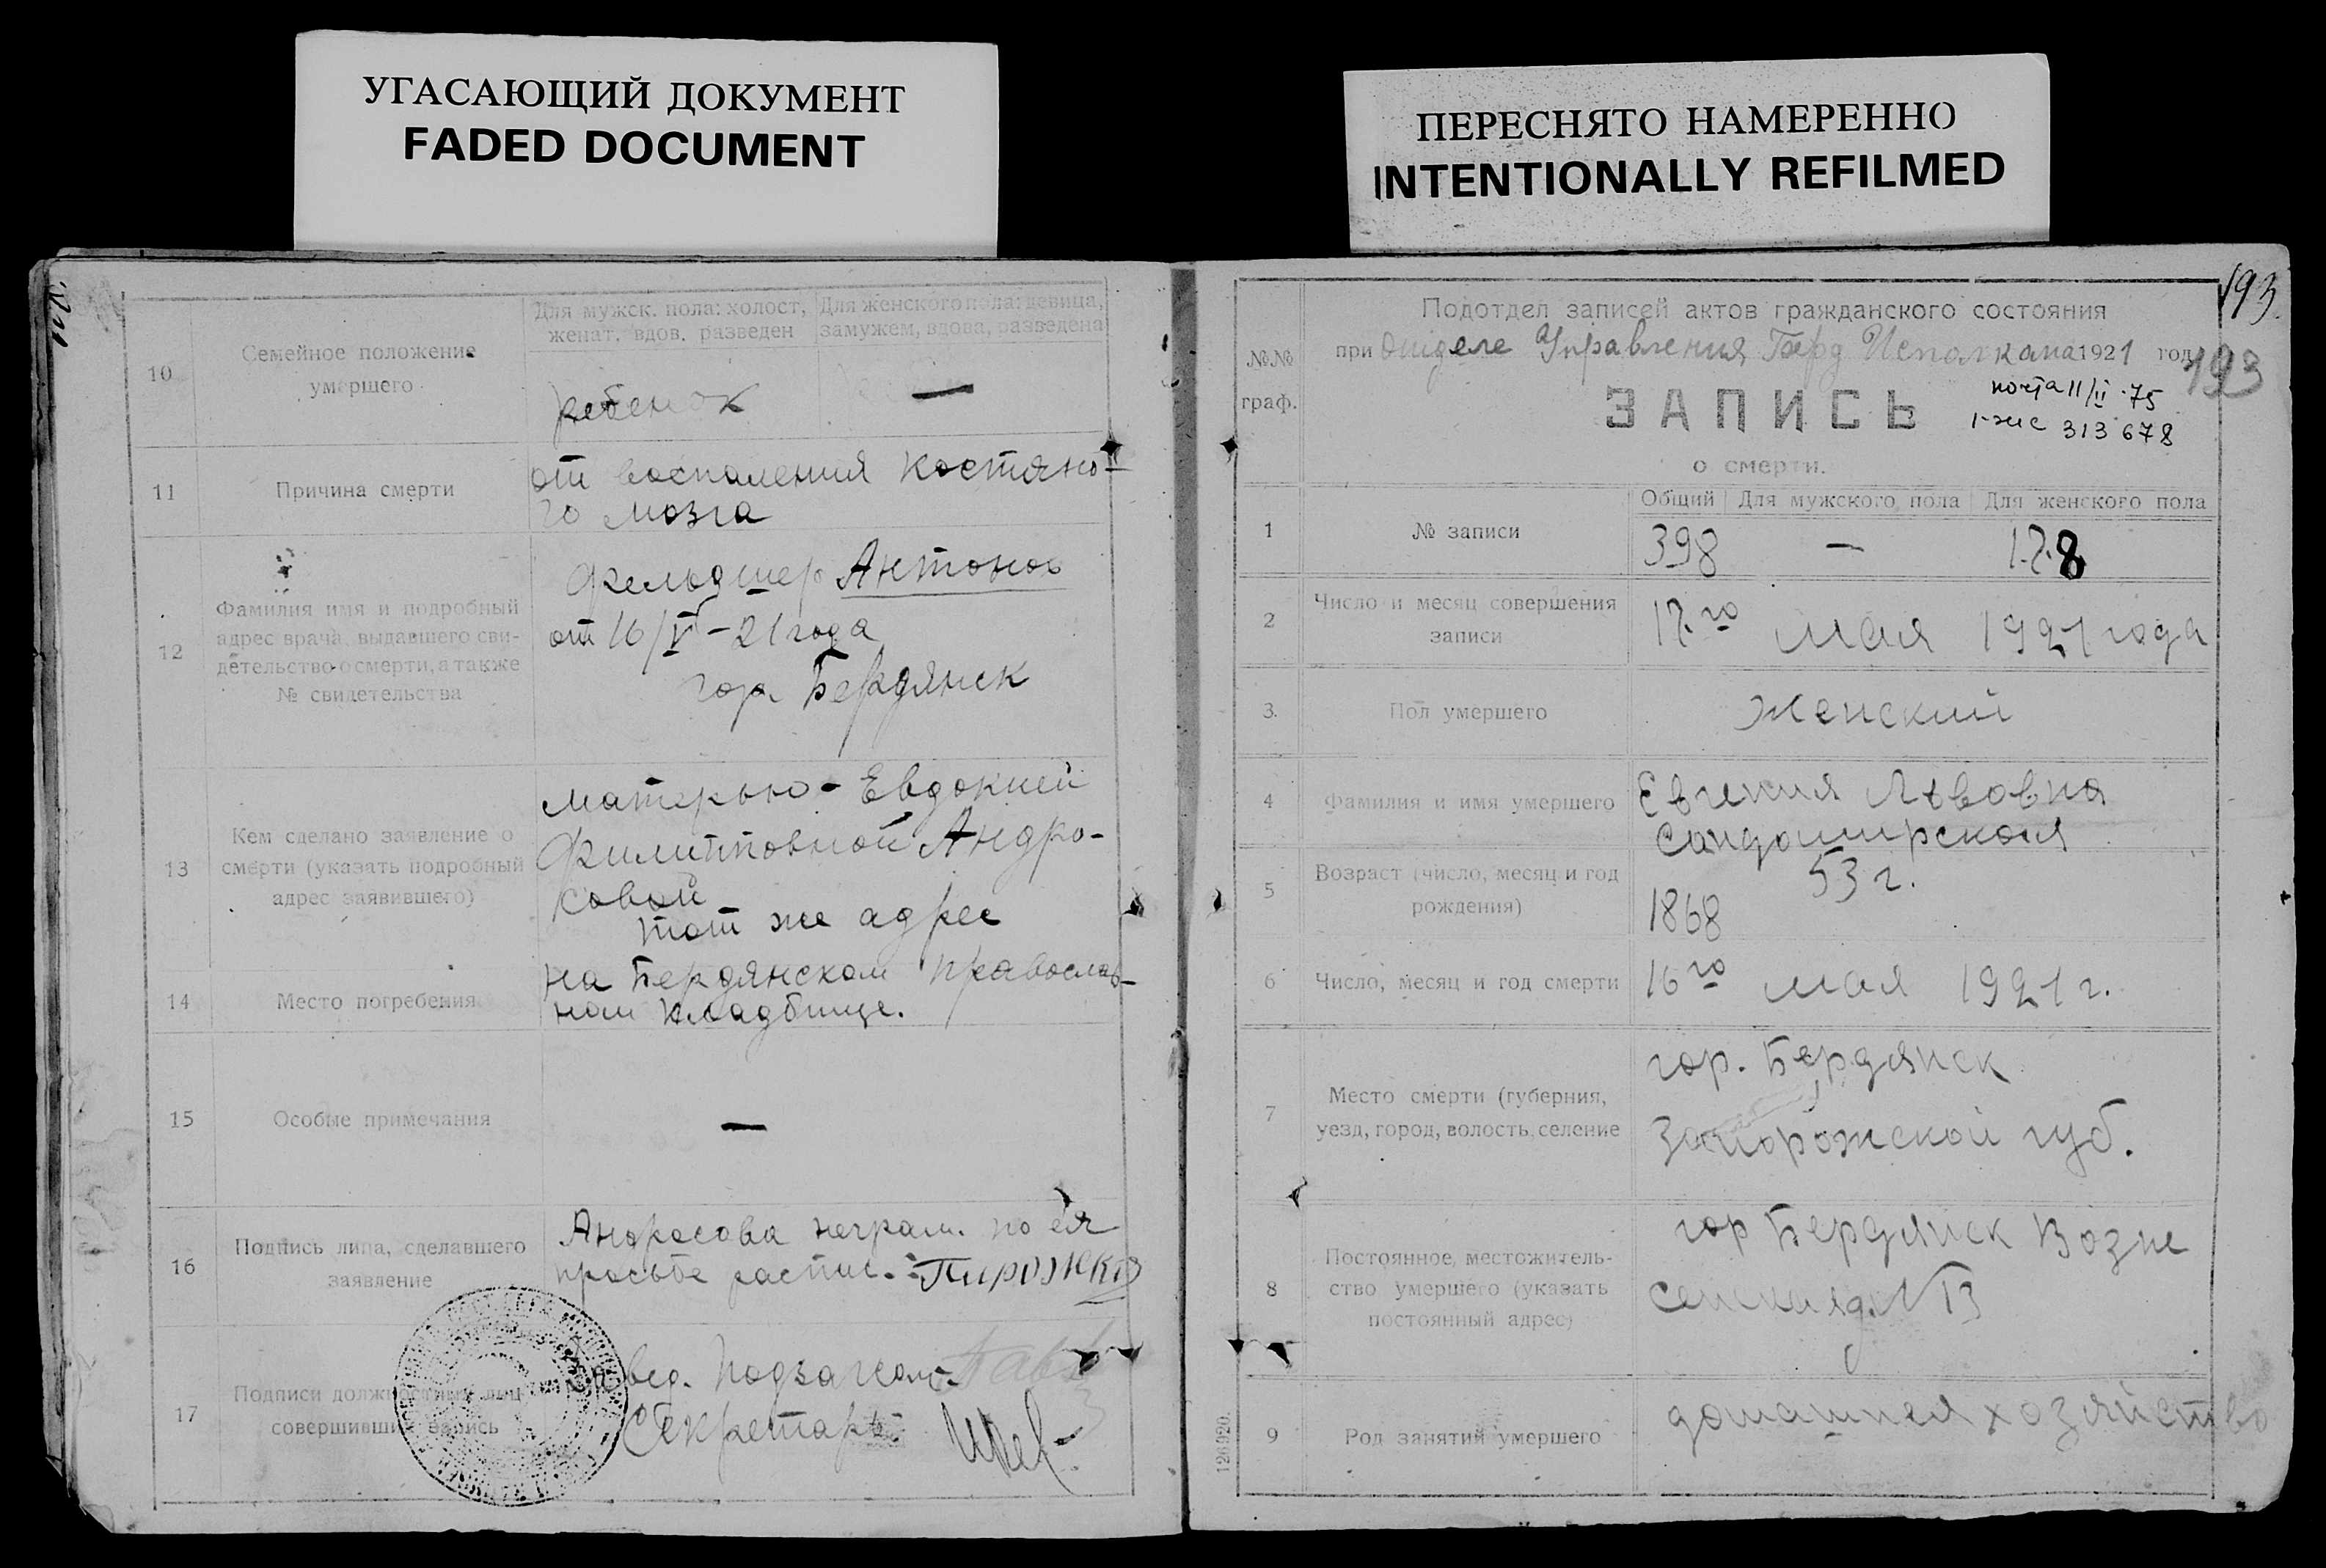 УГАСАЮЩИЙ ДОКУМЕНТ
FADED DOCUMENT
ПЕРЕСНЯТО НАМЕРЕННО
INTENTIONALLY REFILMED
10
Семейное положение
умершего
Для мужск. пола: холост,
женат, вдов, разведен
Для женского пола: девица,
замужем, вдова, разведена
ребенок
—
11
Причина смерти
от воспаления костяно-
го мозга
12
Фамилия имя и подробный
адрес врача, выдавшего сви-
детельство о смерти, а также
№ свидетельства
фельдшер Антонов
от 16/V-21 года
гор Бердянск
13
Кем сделано заявление о
смерти (указать подробный
адрес заявившего)
матерью - Евдокией
Филипповной Андро-
совой
тот же адрес
14
Место погребения
на Бердянском православ-
ном кладбище.
15
Особые примечания
—
16
Подпись лица, сделавшего
заявление
Андросова неграм. по ея
просьбе распис.
17
Подписи должностных лиц
совершивших запись
Завед. Подзагсом
Секретарь
193
№№
граф.
Подотдел записей актов гражданского состояния
при Отделе Управления Берд Исполкома 1921 год
193
ЗАПИСЬ
почта 11/II-75
313678
о смерти.
1
№ записи
Общий
Для мужского пола
Для женского пола
398
—
178
2
Число и месяц совершения
записи
17го мая 1921 года
3.
Пол умершего
Женский
4
Фамилия и имя умершего
Евгения Львовна
Сандомирская
5
Возраст (число, месяц и год
рождения)
53 г.
1868
6
Число, месяц и год смерти
16го мая 1921 г.
7
Место смерти (губерния,
уезд, город, волость, селение
гор. Бердянск
Запорожской губ.
8
Постоянное местожитель-
ство умершего (указать
постоянный адрес)
гор Бердянск Возне
сенская
9
Род занятий умершего
домашнея хозяйство
126920.